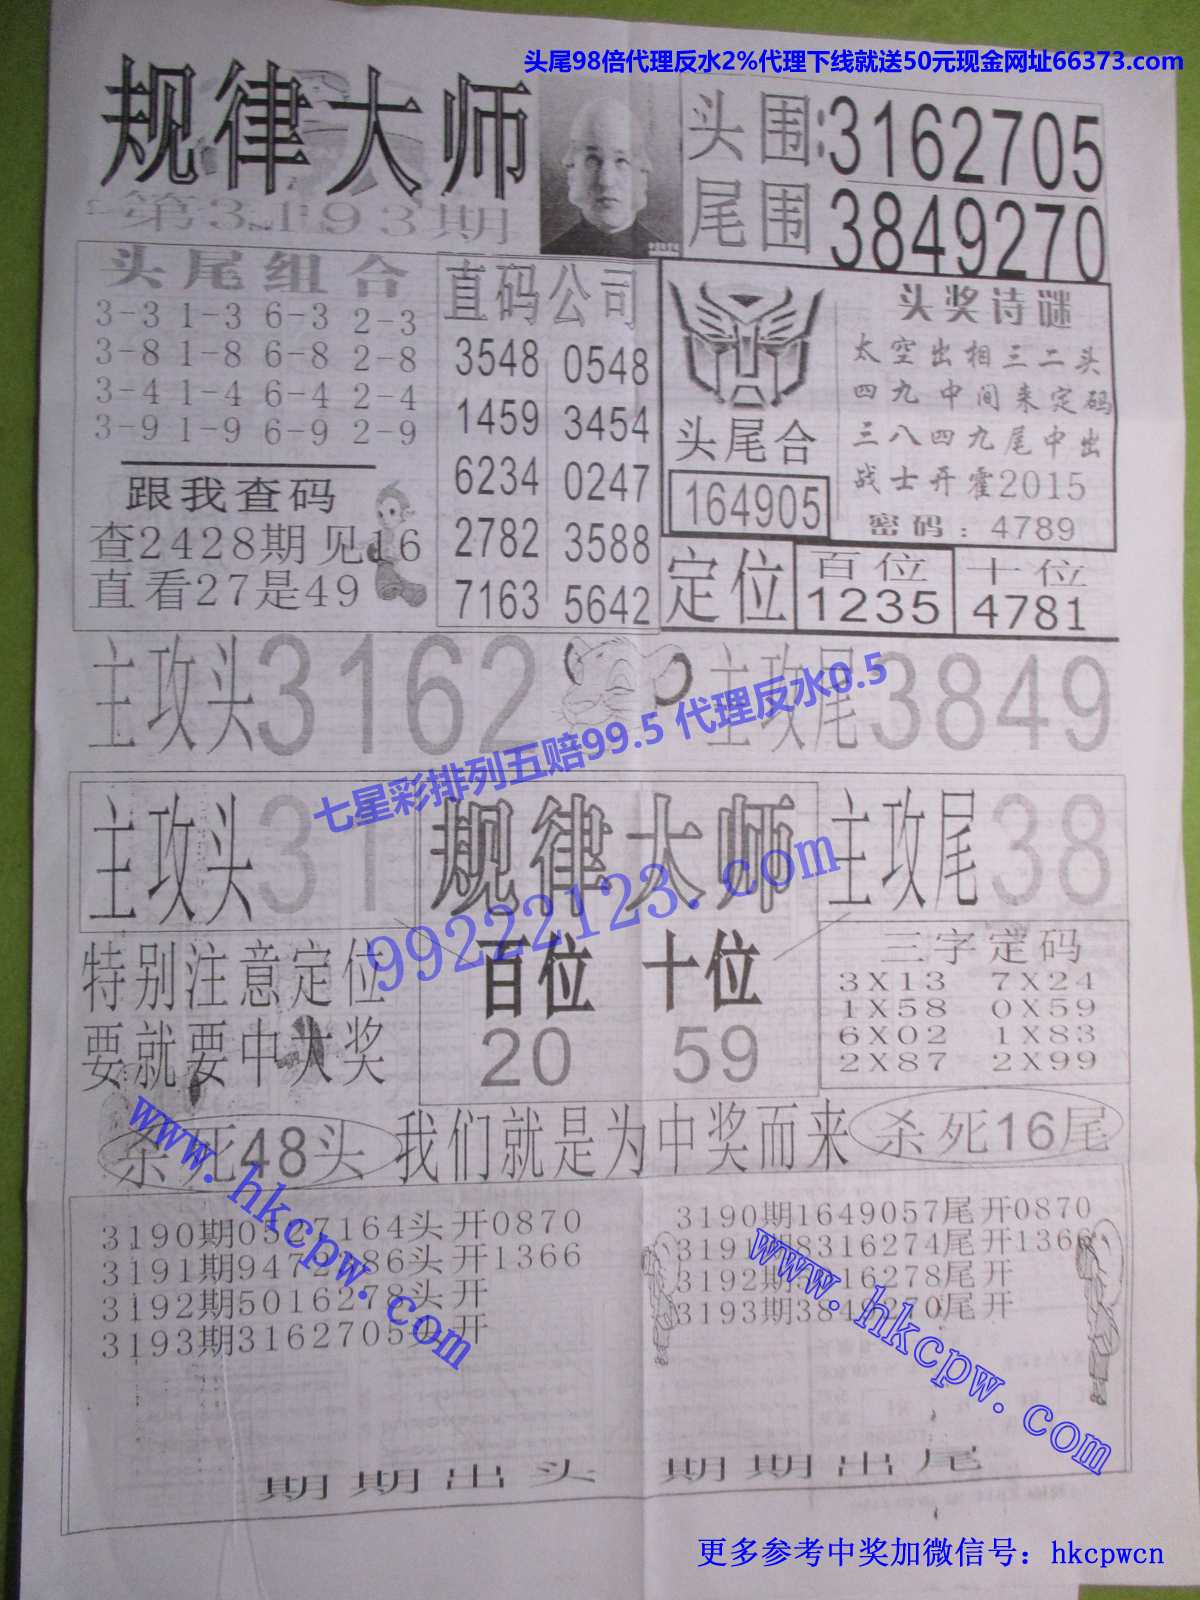 头尾98倍代理反水2%代理下线就送50元现金网址66373.com
规律大师
第3193期
头围:3162705
尾围 3849270
头尾组合
3-3 1-3 6-3 2-3
3-8 1-8 6-8 2-8
3-4 1-4 6-4 2-4
3-9 1-9 6-9 2-9
跟我查码
查2428期见16
直看27是49
直码公司
3548 0548
1459 3454
6234 0247
2782 3588
7163 5642
头尾合
164905
头奖诗谜
太空出相三二头
四九中间来定码
三八四九尾中出
战士开霍2015
密码:4789
定位
百位
1235
十位
4781
主攻头3162
主攻尾3849
七星彩排列五赔99.5 代理反水0.5
主攻头31
规律大师
主攻尾38
99222123.com
特别注意定位
要就要中大奖
百位 十位
20 59
三字定码
3X13 7X24
1X58 0X59
6X02 1X83
2X87 2X99
杀死48头
我们就是为中奖而来
杀死16尾
www.hkcpw.com
3190期0527164头开0870
3191期9472 86头开1366
3192期5016278头开
3193期3162705头开
3190期1649057尾开0870
3191期8316274尾开1366
3192期 16278尾开
3193期3849270尾开
www.hkcpw.com
期期出头 期期出尾
更多参考中奖加微信号：hkcpwcn